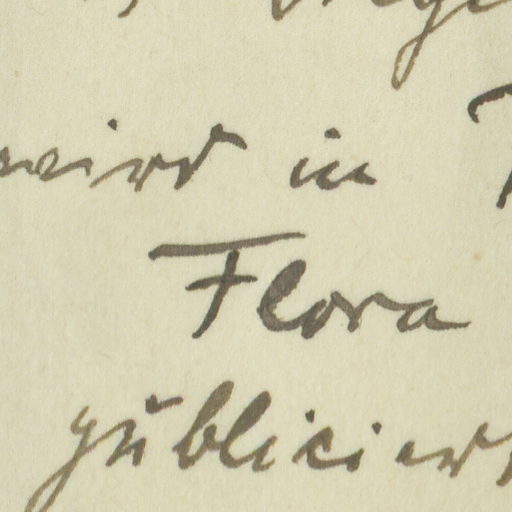 wird in
Flora
publiciert